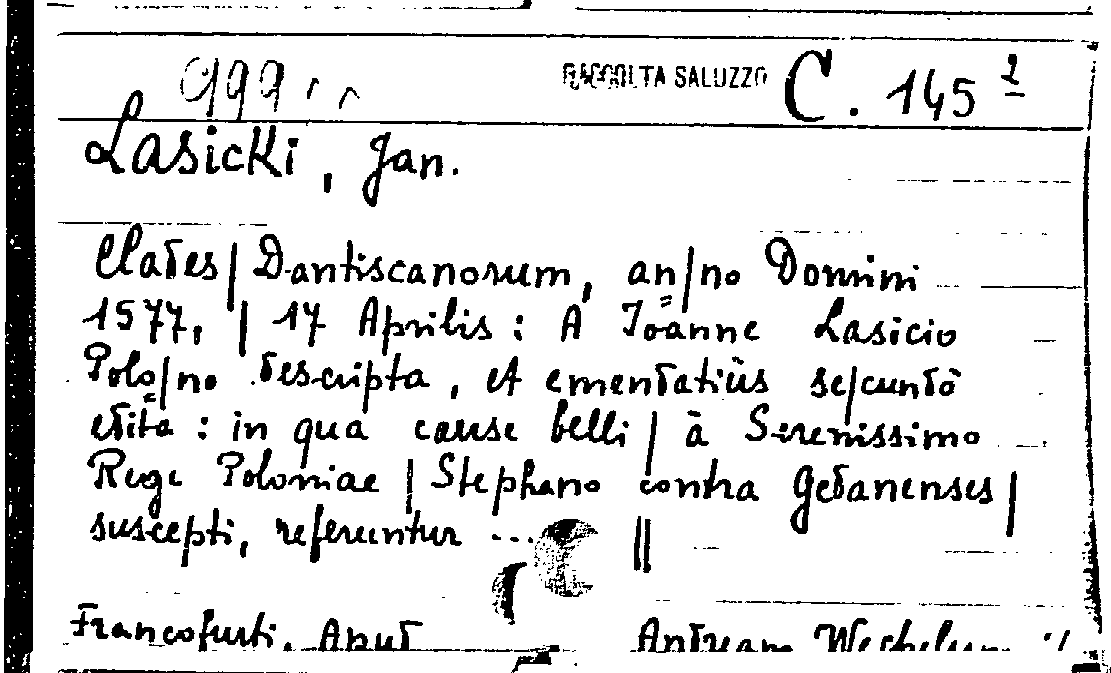 999
RACCOLTA SALUZZO C. 145²
Lasicki, Jan.
Clades | Dantiscanorum, an=|no Domini
1577, | 17 Aprilis : A Ioanne Lasicio
Polo=|no descripta, et ementatiùs se|cundò
edita : in qua cause belli | à Serenissimo
Rege Poloniae | Stephano contra Gedanenses |
suscepti, referuntur ... ||
Francofurti, Apud Andream Wechelum